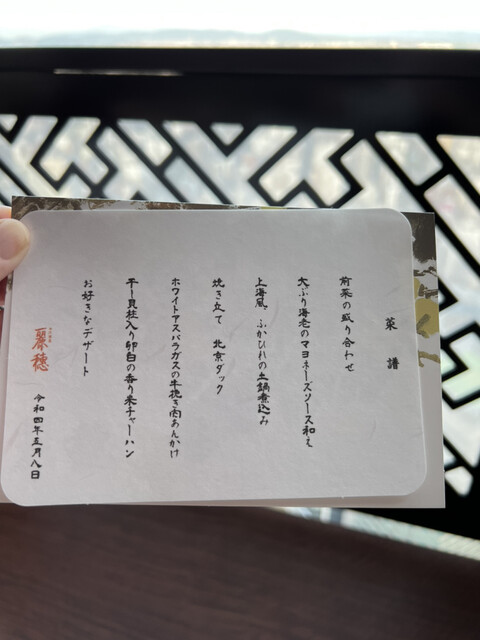 菜譜
前菜の盛り合わせ
大ぶり海老のマヨネーズソース和え
上海風、ふかひれの土鍋煮込み
焼き立て 北京ダック
ホワイトアスパラガスの牛挽き肉あんかけ
干し貝柱入り卵白の香り米チャーハン
お好きなデザート
麗穂
令和四年五月八日